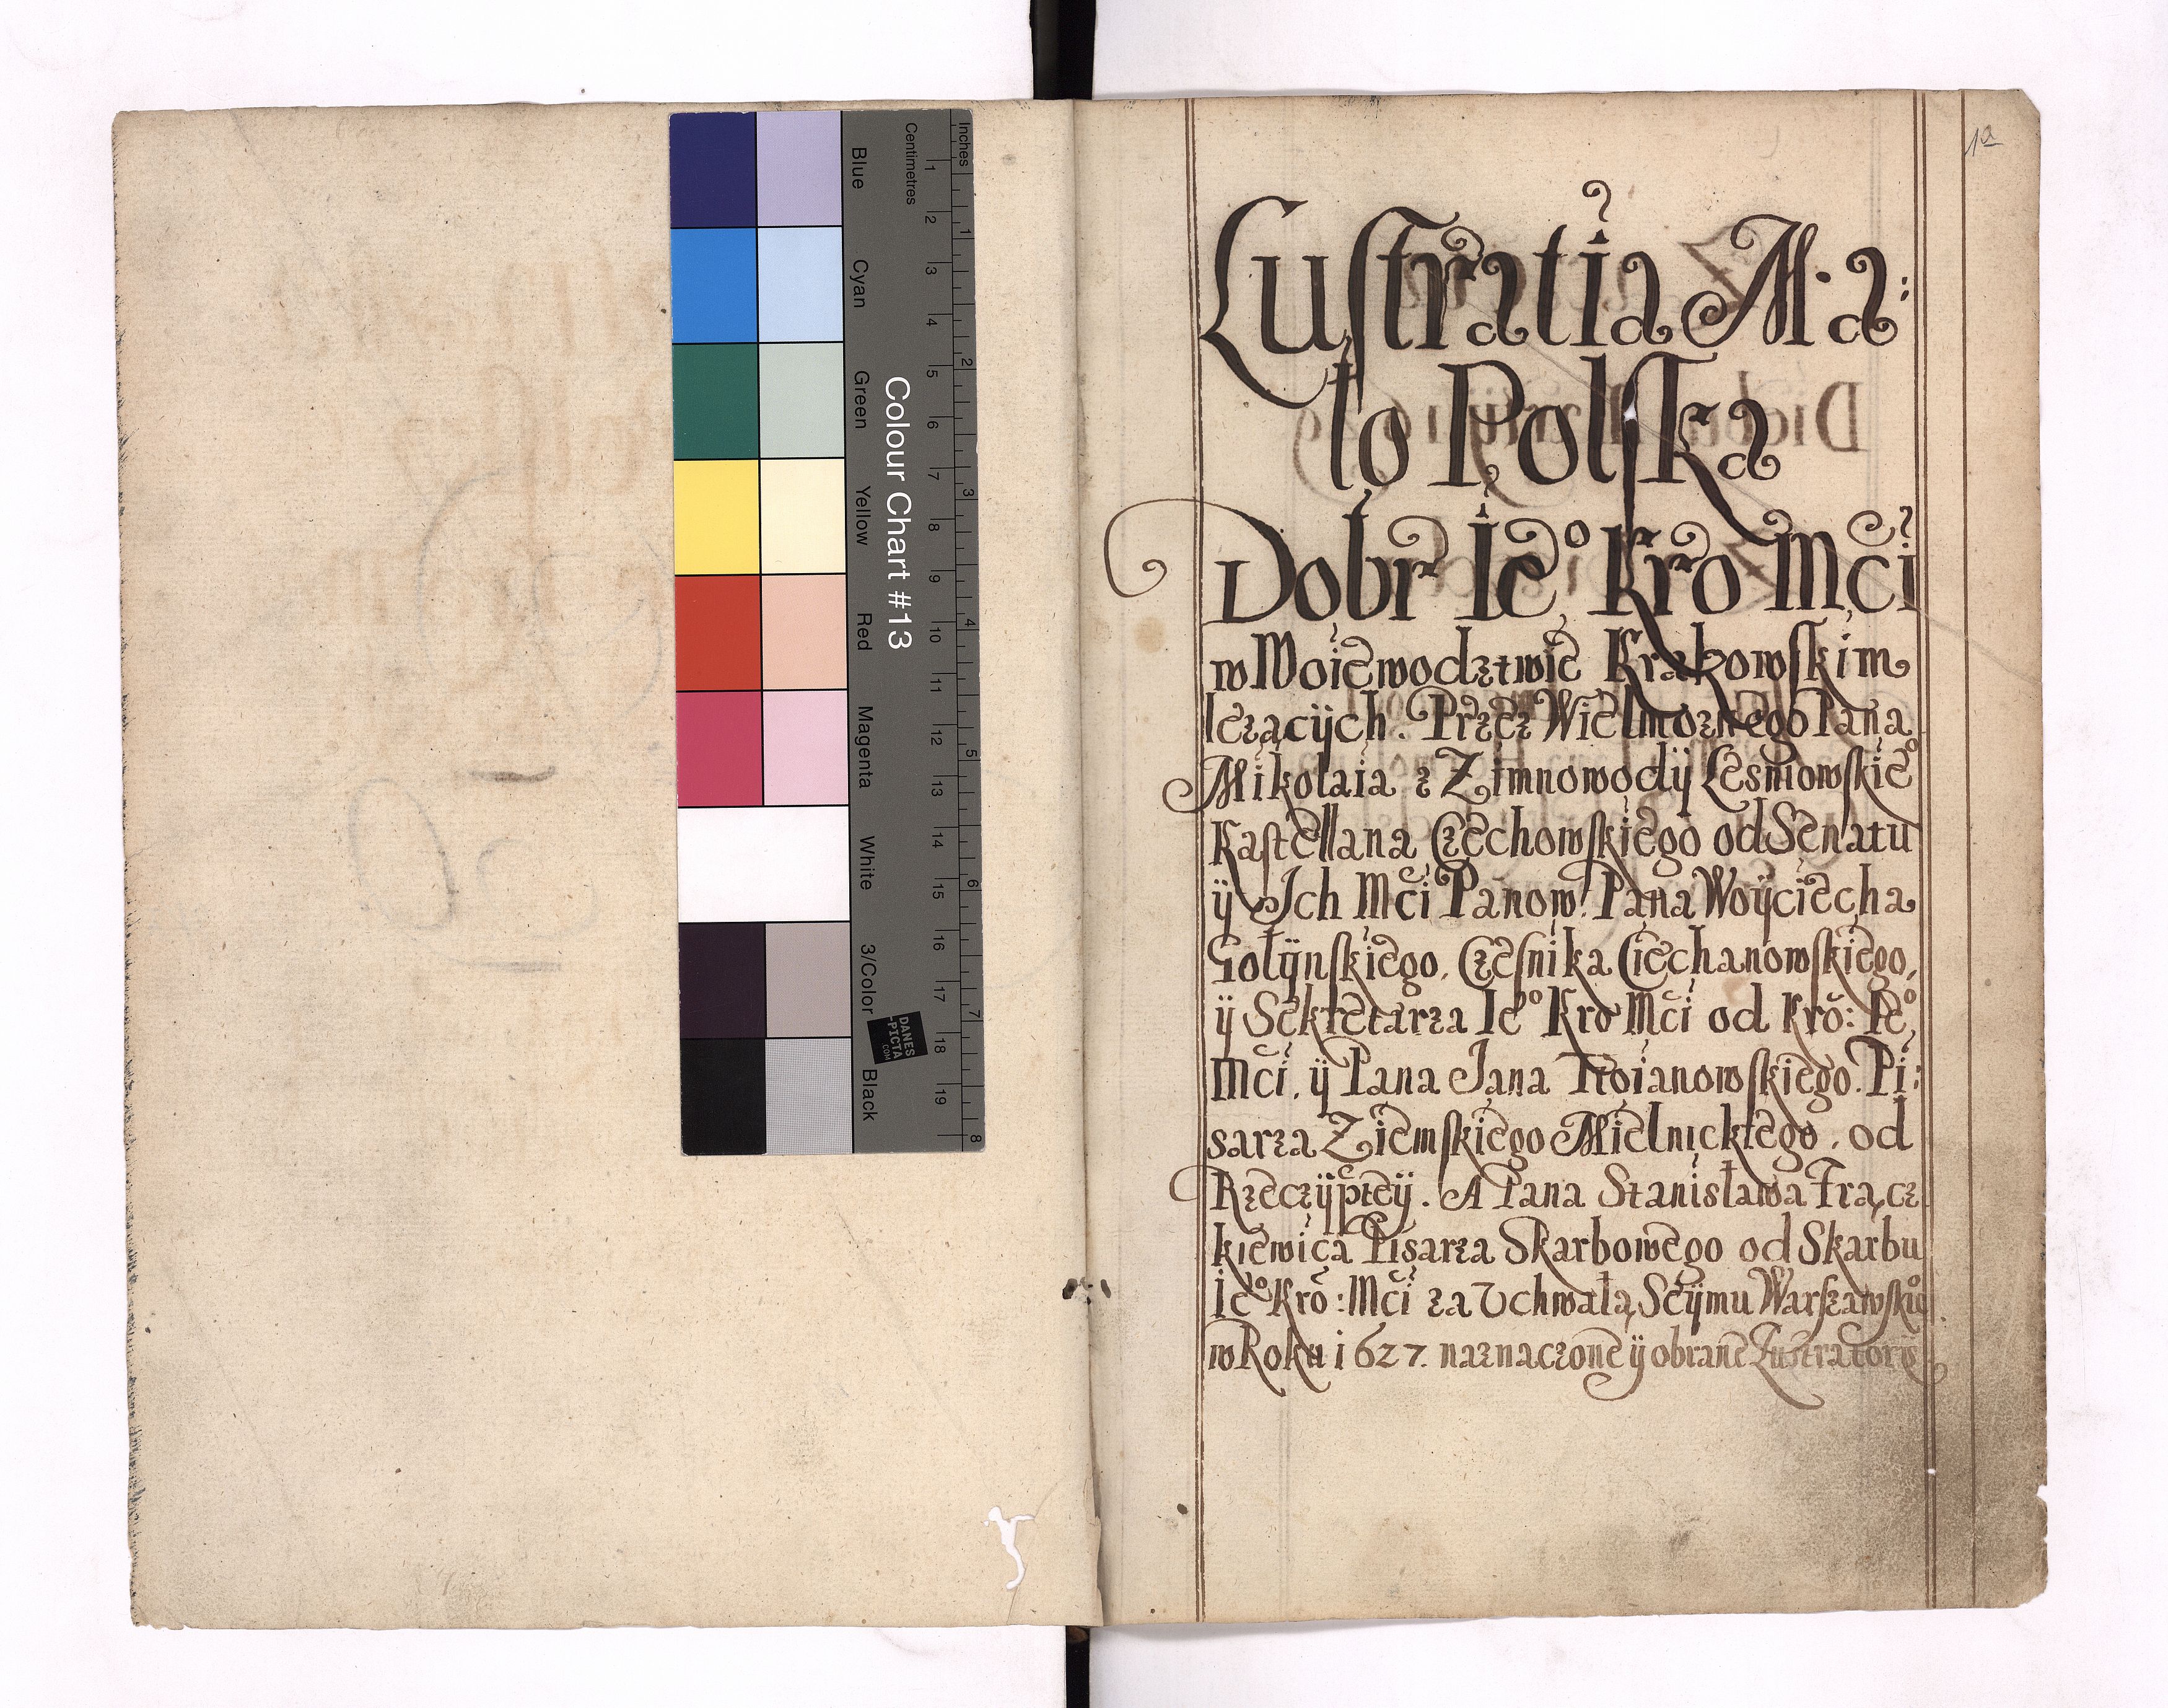 Inches
Centimetres
1 2 3 4 5 6 7 8 9 10 11 12 13 14 15 16 17 18 19
1 2 3 4 5 6 7 8
Colour Chart #13
Blue
Cyan
Green
Yellow
Red
Magenta
White
3/Color
Black
DANES
-PICTA
.COM
1a
Lustratia Ma:
lo Polska
Dobr Ieo Kro Mci
w Woiewodztwie Krakowskim
lezacÿch. Przez Wielmoznego Pana
Mikolaia z Zimnowodÿ Lesniowskieo
Kastellana Czechowskiego od Senatu
ÿ Ich Mci Panow. Pana Woÿciecha
Golÿnskiego, Czesnika Ciechanowskiego,
ÿ Sekretarza Ieo Kro Mci od Kro: Ieo
Mci. ÿ Pana Jana Troianowskiego. Pi:
sarza Ziemskiego Mielnickiego. od
Rzeczÿpteÿ. A Pana Stanisława Frącz
kiewica Pisarza Skarbowego od Skarbu
Ieo Kro: Mci za Vchwałą Seÿmu Warszawskieo
w Roku 1627. naznaczone ÿ obrane Lustratorÿ